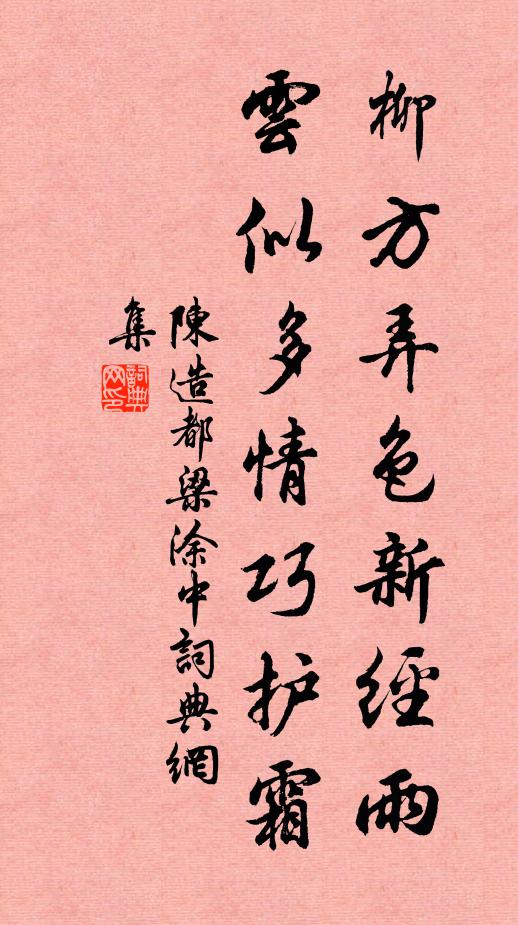 柳方弄色新經雨
雲似多情巧护霜
陳造都梁涂中詞典網
集
詞典
网印